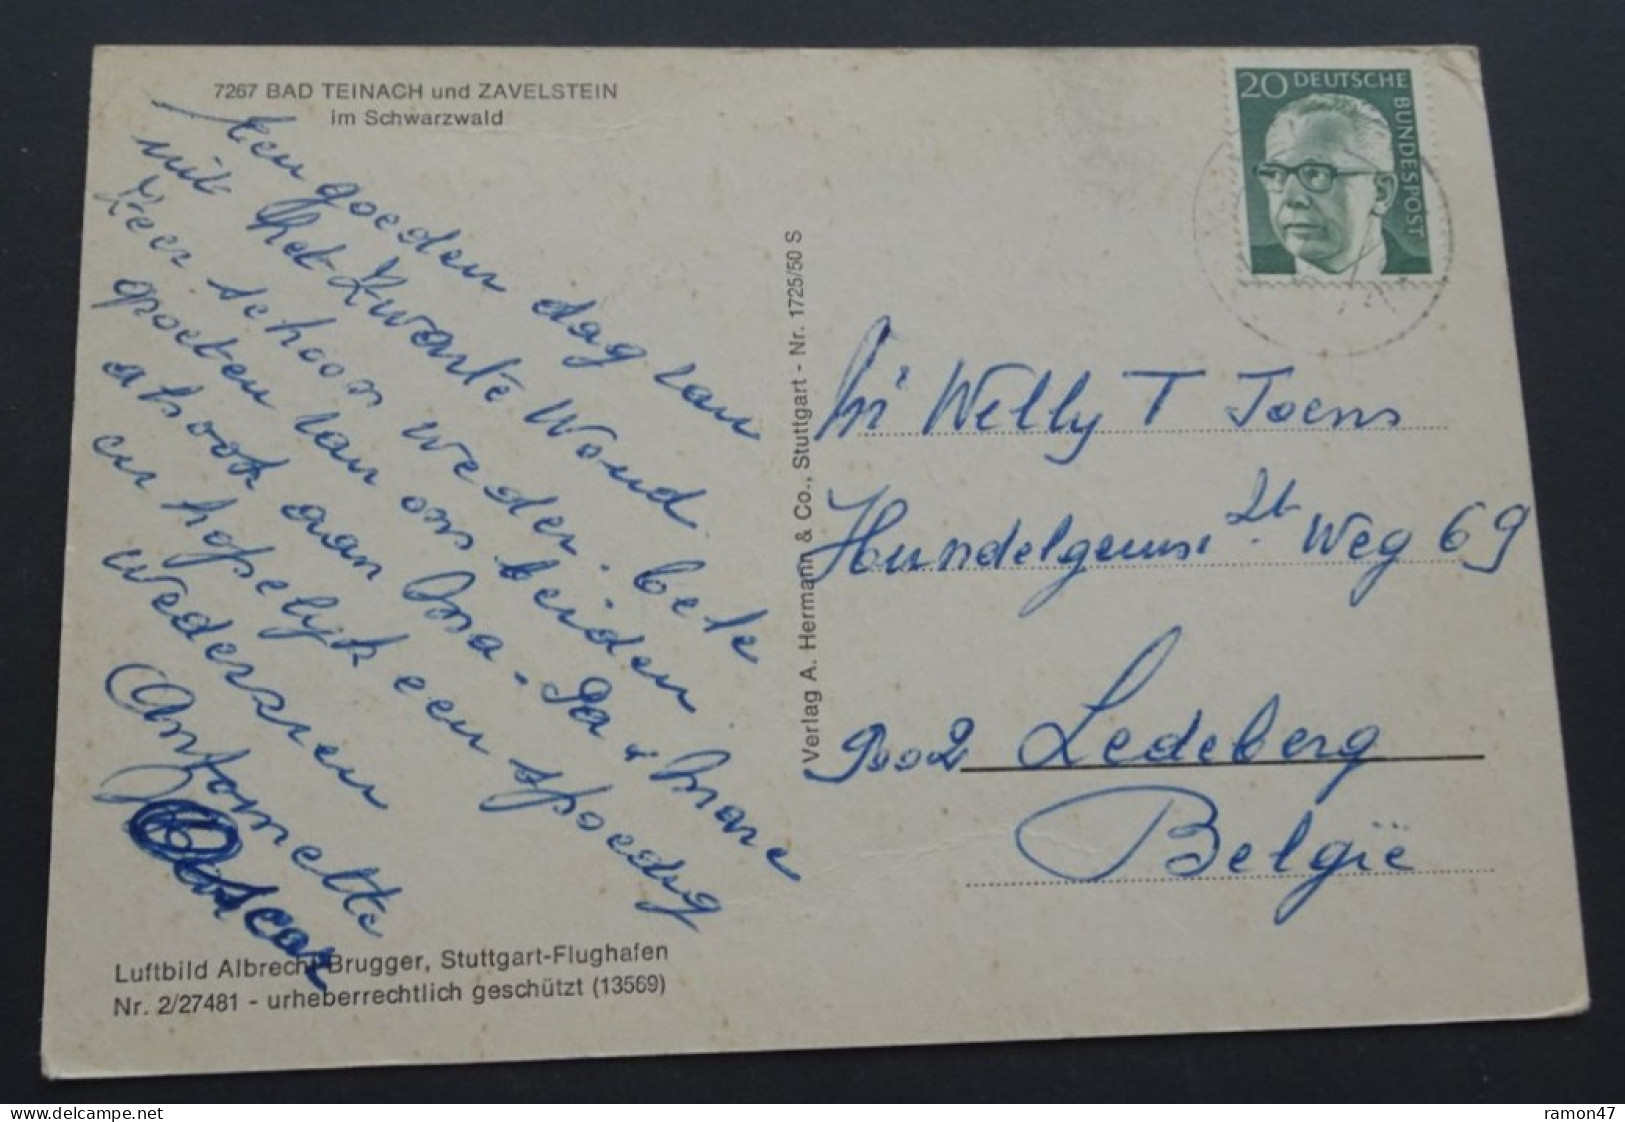 7267 BAD TEINACH und ZAVELSTEIN
im Schwarzwald
een goeden dag van
uit het Zwarte Woud
zeer schoon weder. bele
groeten van ons beiden
alsook aan Ma - Pa &
en hopelijk een spoedig
wederzien
Antoinette
Oscar
Luftbild Albrecht Brugger, Stuttgart-Flughafen
Nr. 2/27481 - urheberrechtlich geschützt (13569)
Verlag A. Hermann & Co., Stuttgart - Nr. 1725/50 S
20 DEUTSCHE
BUNDESPOST
Willy T Joens
Weg 69
9002 Ledeberg
België
www.delcampe.net
ramon47